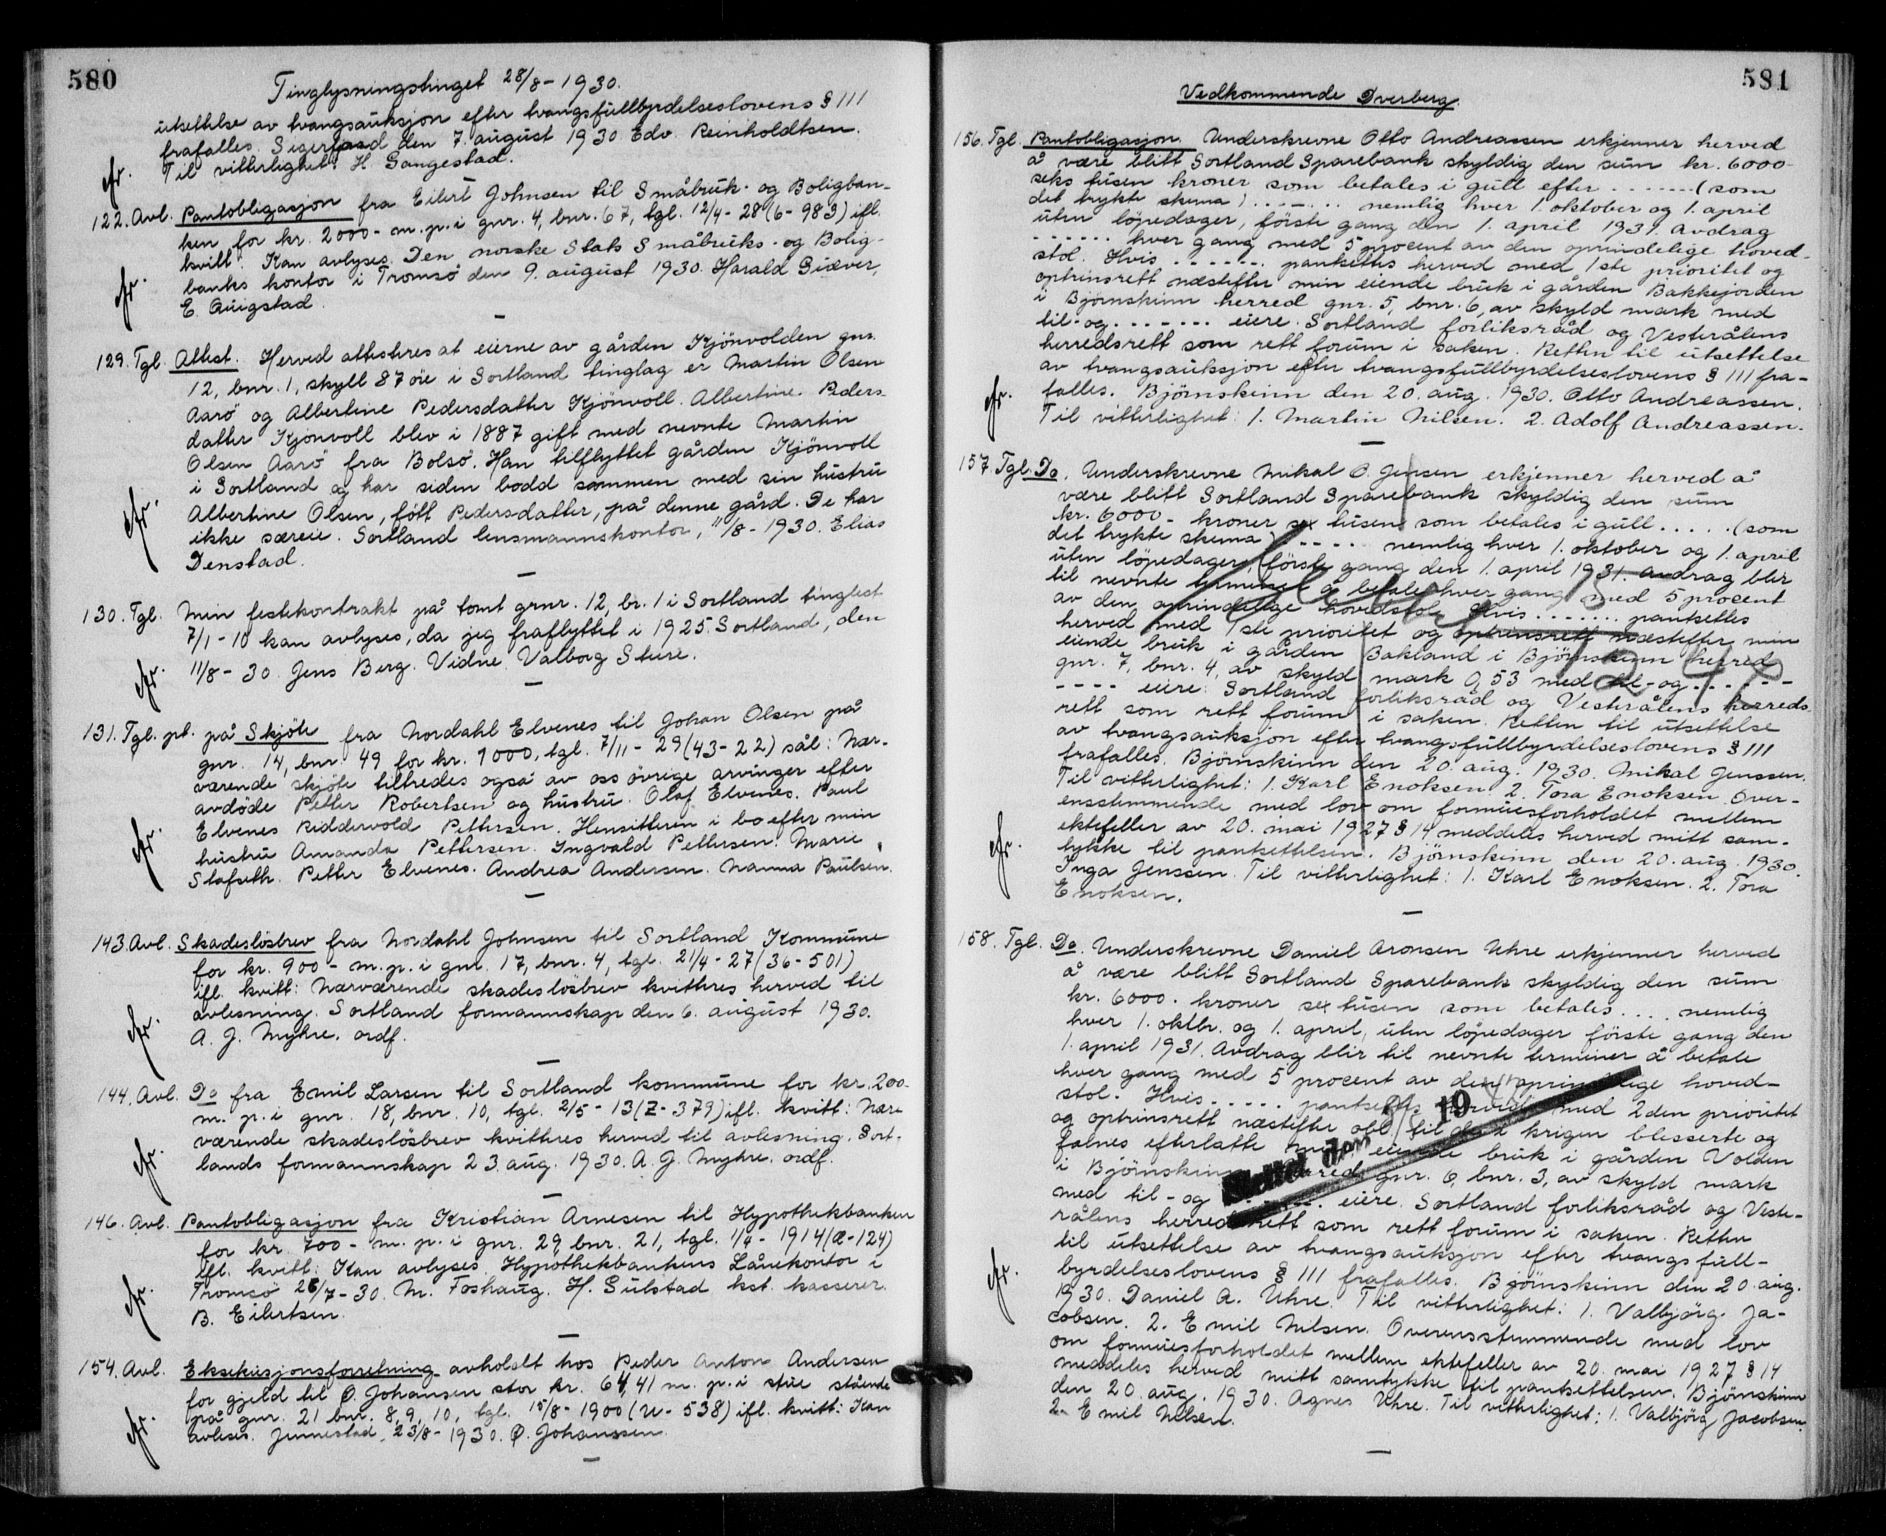 580
Tinglysningstinget 28/8-1930.
utsettelse av tvangsauksjon efter tvangsfullbyrdelseslovens § 111
frafalles. Sigerfjord den 7. august 1930 Edv. Reinholdtsen.
Til vitterlighet: H. Gangestad.
122. Avl. Pantobligasjon fra Eilert Johnsen til Småbruk- og Boligban-
ken for kr. 2000- m. p. i gnr. 4, bnr. 67, tgl. 12/4-28 (6-983) ifl.
kvitt: Kan avlyses. Den norske Stats Småbruks- og Bolig-
banks kontor i Tromsö den 9. august 1930. Harald Giæver,
E. Quigstad.
129. Tgl. Attest. Herved attesteres at eierne av gården Kjönvolden gnr.
12, bnr. 1, skyll 87 öre i Sortland tinglag er Martin Olsen
Aarö og Albertine Pedersdatter Kjönvoll. Albertine Peders-
datter Kjönvoll blev i 1887 gift med nevnte Martin
Olsen Aarö fra Bolsö. Han tilflyttet gården Kjönvoll
i Sortland og har siden bodd sammen med sin hustru
Albertine Olsen, fött Pedersdatter, på denne gård. De har
ikke særeie. Sortland lensmannskontor, 11/8-1930. Elias
Denstad.
130. Tgl. Min festekontrakt på tomt grnr. 12, br. 1 i Sortland tinglest
7/1-10 kan avlyses, da jeg fraflyttet i 1925. Sortland, den
11/8-30. Jens Berg. Vidne Valborg Sture.
131. Tgl. pt. på Skjöte fra Nordahl Elvenes til Johan Olsen på
gnr. 14, bnr. 49 for kr. 1000, tgl. 7/11-29 (43-22) sål: Nær-
værende skjöte tiltredes også av oss övrige arvinger efter
avdöde Petter Robertsen og hustru. Olaf Elvenes. Paul
Elvenes Riddervold Pettersen. Hensitteren i bo efter min
hustru Amanda Pettersen. Ingvald Pettersen. Marie
Slafseth. Petter Elvenes. Andrea Andersen. Nanna Paulsen.
143. Avl. Skadeslösbrev fra Nordahl Johnsen til Sortland Kommune
for kr. 900- m. p. i gnr. 17, bnr. 4, tgl. 21/4-27 (36-501)
ifl. kvitt: Nærværende skadeslösbrev kvitteres herved til
avlesning. Sortland formannskap den 6. august 1930.
A. J. Myhre. ordf.
144. Avl. Do fra Emil Larsen til Sortland kommune for kr. 200-
m. p. i gnr. 18, bnr. 10, tgl. 2/5-13 (Z-379) ifl. kvitt: Nær-
værende skadeslösbrev kvitteres herved til avlesning. Sort-
lands formannskap 23. aug. 1930. A. J. Myhre. ordf.
146. Avl. Pantobligasjon fra Kristian Arnesen til Hypothekbanken
for kr. 700- m. p. i gnr. 29, bnr. 21, tgl. 1/4-1914 (Æ-124)
ifl. kvitt: Kan avlyses. Hypothekbankens Lånekontor i
Tromsö 26/7-30. M. Foshaug. H. Gulstad kst. kasserer.
B. Eilertsen.
154. Avl. Eksekusjonsforretning avholdt hos Peder Anton Andersen
for gjeld til O. Johansen stor kr. 64,41 m. p. i stue stående
på gnr. 21 bnr. 8, 9, 10, tgl. 15/8-1900 (U-538) ifl. kvitt: Kan
avleses. Jennestad, 23/8-1930. O. Johanssen.
581
Vedkommende Dverberg.
156. Tgl. Pantobligasjon Underskrevne Otto Andreassen erkjenner herved
å være blitt Sortland Sparebank skyldig den sum kr. 6000-
seks tusen kroner som betales i gull efter ....... (som
det trykte skema) ....... nemlig hver 1. oktober og 1. april
uten löpedager, förste gang den 1. april 1931. Avdrag
...... hver gang med 5 procent av den oprindelige hoved-
stol. Hvis ....... pantsettes herved med 1ste prioritet og
optrinsrett næstefter min eiende bruk i gården Bakkejorden
i Björnskinn herred gnr. 5, bnr. 6, av skyld mark med
til- og ....... eiere. Sortland forliksråd og Vesterålens
herredsrett som rett forum i saken. Retten til utsettelse
av tvangsauksjon efter tvangsfullbyrdelseslovens § 111 fra-
falles. Björnskinn den 20. aug. 1930. Otto Andreassen.
Til vitterlighet: 1. Martin Nilsen. 2. Adolf Andreassen.
157. Tgl. Do. Underskrevne Mikal O. Jensen erkjenner herved å
være blitt Sortland Sparebank skyldig den sum
kr. 6000- kroner sex tusen som betales i gull ..... (som
det trykte skema) ...... nemlig hver 1. oktober og 1. april
uten löpedager, förste gang den 1. april 1931. Avdrag blir
til nevnte terminer å betale hver gang med 5 procent
av den oprindelige hovedstol. Hvis ....... pantsettes
herved med 1ste prioritet og optrinsrett næstefter min
eiende bruk i gården Bakland i Björnskinn herred
gnr. 7, bnr. 4, av skyld mark 0,53 med til- og .......
.... eiere. Sortland forliksråd og Vesterålens herreds-
rett som rett forum i saken. Retten til utsettelse
av tvangsauksjon efter tvangsfullbyrdelseslovens § 111
frafalles. Björnskinn den 20. aug. 1930. Mikal Jenssen.
Til vitterlighet: 1. Karl Enoksen 2. Tora Enoksen. Over-
ensstemmende med lov om formuesforholdet mellem
ektefeller av 20. mai 1927 § 14 meddeles herved mitt sam-
tykke til pantsettelsen. Björnskinn den 20. aug. 1930.
Inga Jenssen. Til vitterlighet: 1. Karl Enoksen. 2. Tora
Enoksen.
158. Tgl. Do. Underskrevne Daniel Aronsen Uhre erkjenner herved
å være blitt Sortland Sparebank skyldig den sum
kr. 6000. kroner sex tusen som betales .... nemlig
hver 1. oktbr. og 1. april, uten löpedager förste gang den
1. april 1931. Avdrag blir til nevnte terminer å betale
hver gang med 5 procent av den oprindelige hoved-
stol. Hvis ..... pantsettes herved med 2den prioritet
og optrinsrett næstefter obl. til de i krigen blesserte og
falnes efterlatte min eiende bruk i gården Volden
i Björnskinn herred, gnr. 6, bnr. 3, av skyld mark
med til- og ...... eiere. Sortland forliksråd og Veste-
rålens herredsrett som rett forum i saken. Retten
til utsettelse av tvangsauksjon efter tvangsfull-
byrdelseslovens § 111 frafalles. Björnskinn den 20. aug.
1930. Daniel A. Uhre. Til vitterlighet: 1. Valbjörg Ja-
cobsen. 2. Emil Nilsen. Overensstemmende med lov
om formuesforholdet mellem ektefeller av 20. mai 1927 § 14
meddeles herved mitt samtykke til pantsettelsen. Björnskinn
den 20. aug. 1930. Agnes Uhre. Til vitterlighet: 1. Valbjörg Jacobsen.
2. Emil Nilsen.
Slettet den 19